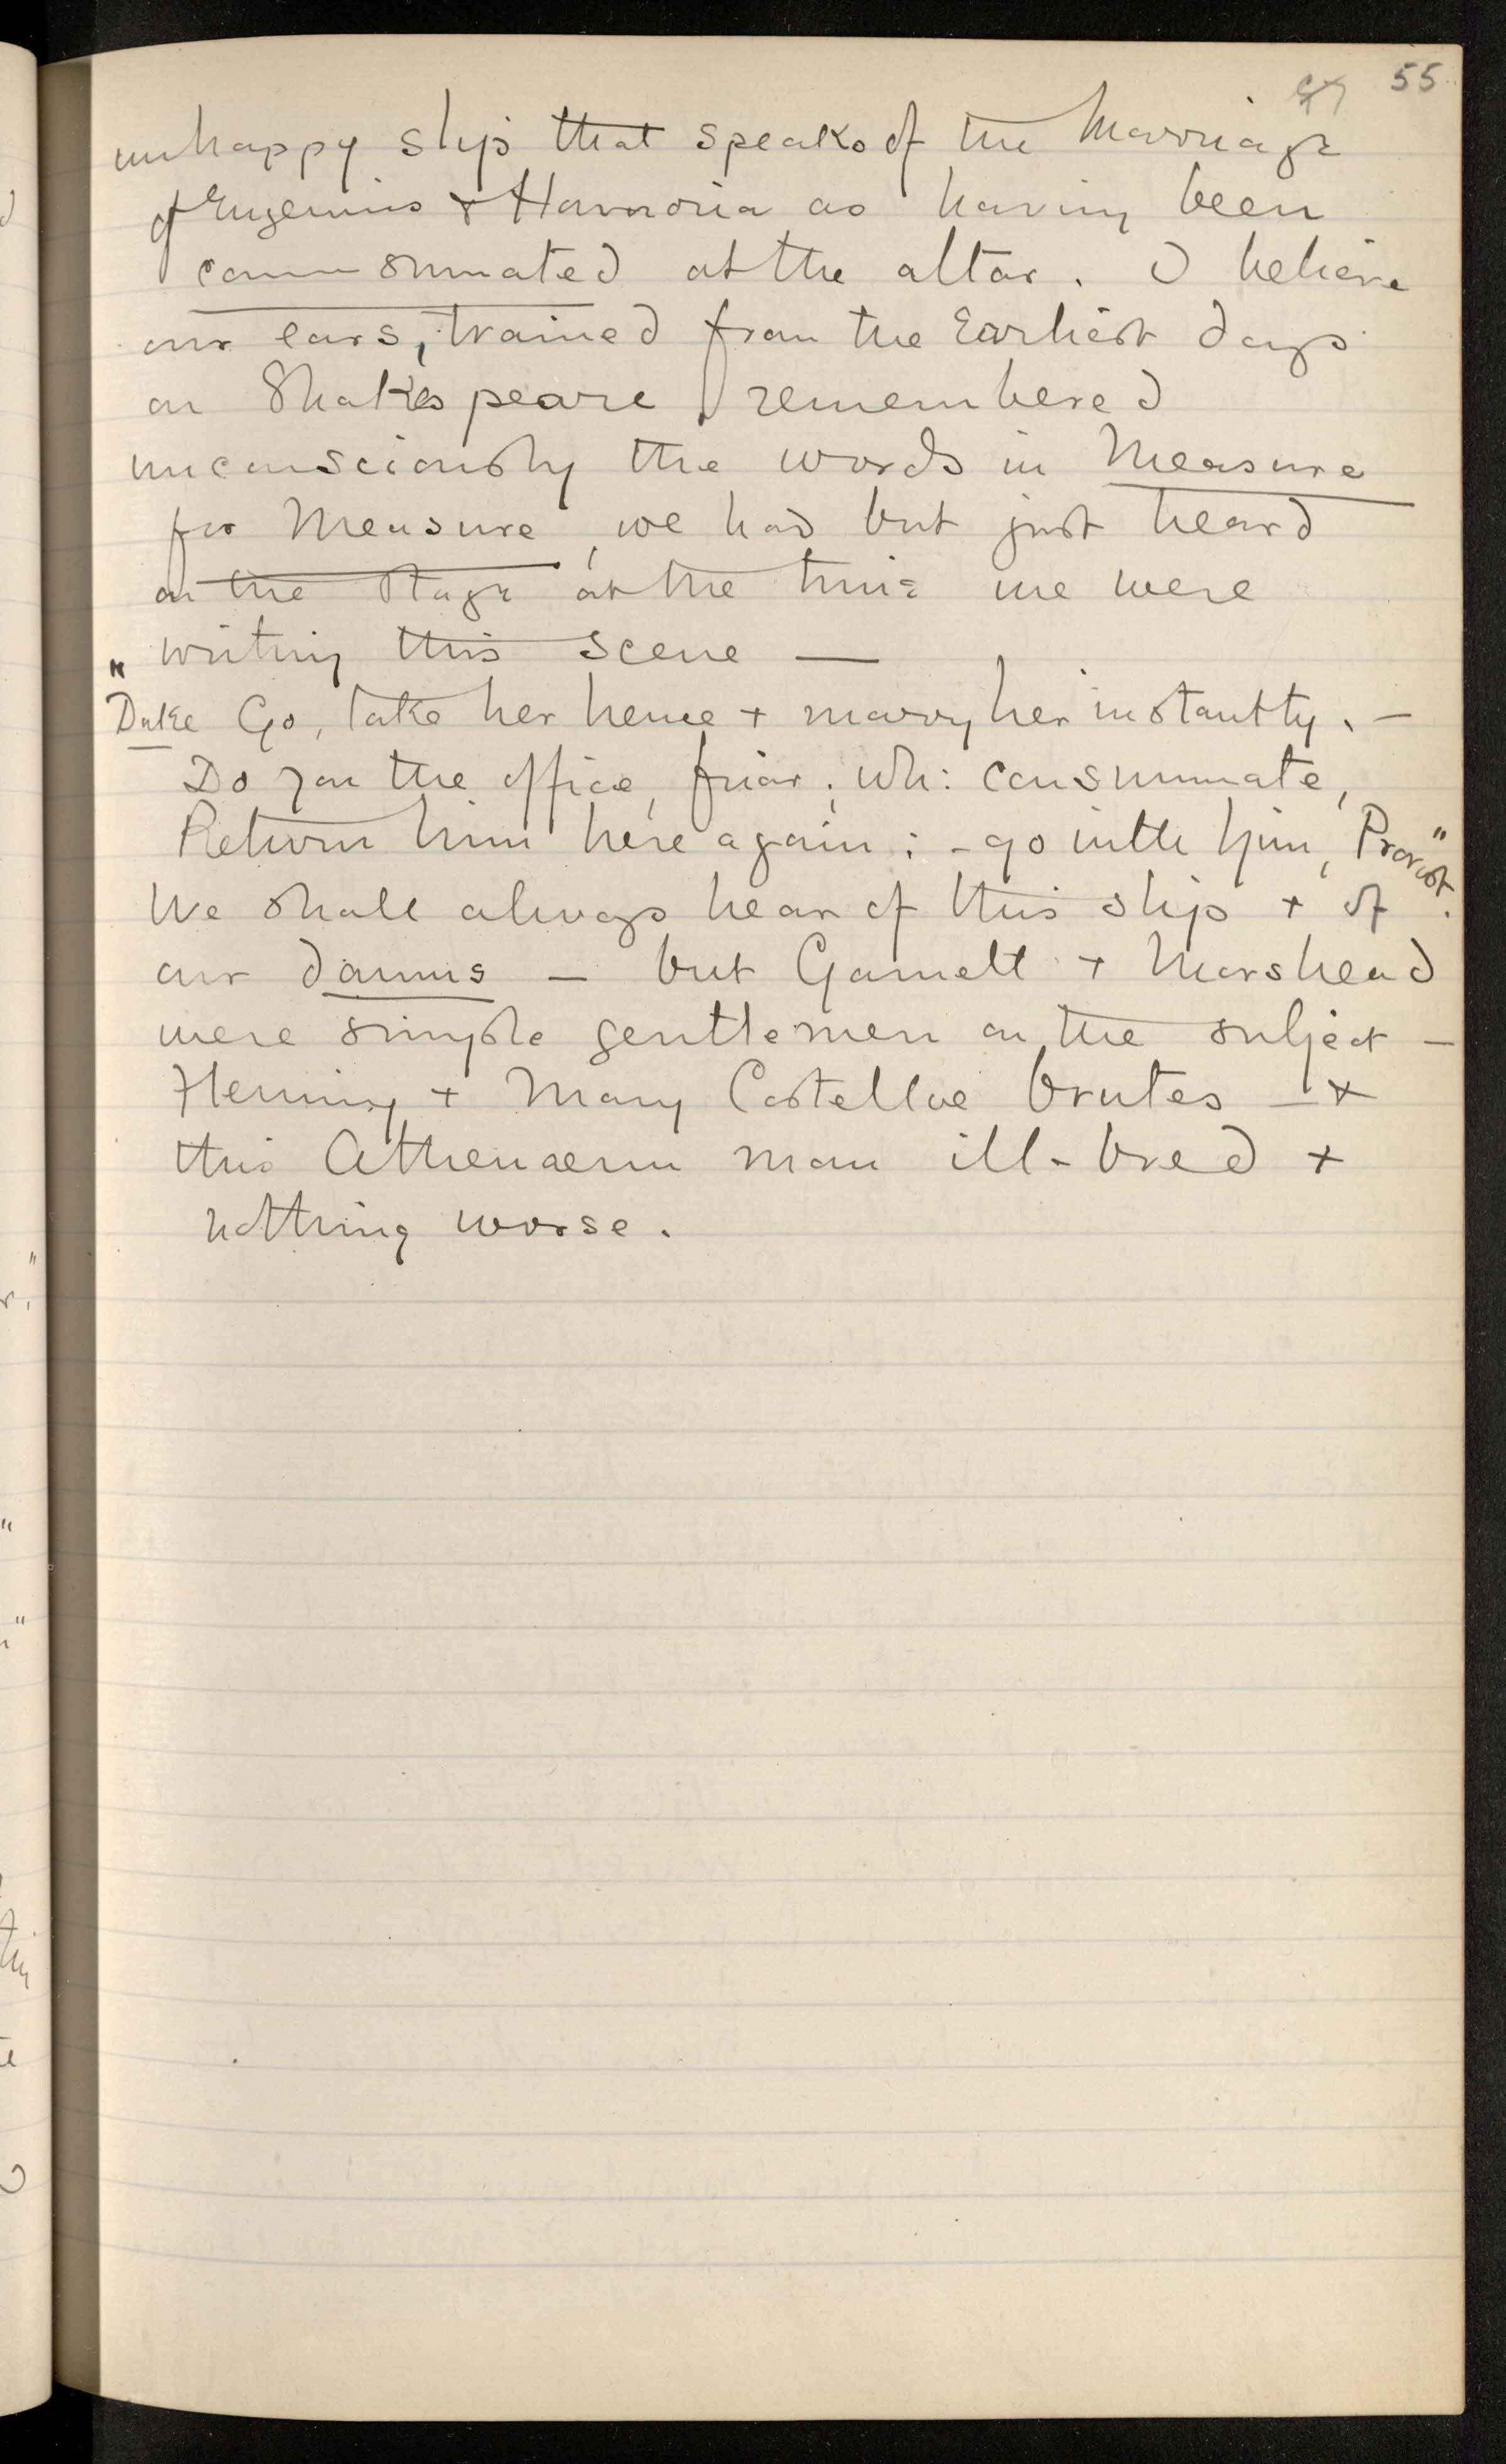 55
unhappy slip that speaks of the Marriage
of Eugenius & Honoria as having been
consummated at the altar. I believe
our ears, trained from the Earliest days
on Shakespeare, remembered
unconsciously the words in Measure
for Measure, we had but just heard
on the stage at the time we were
writing this scene —
"Duke Go, take her hence + marry her instantly. —
Do you the office, friar; wh: consummate,
Return him here again: - go with him, Provost."
We shall always hear of this slip + of
our damns — but Garnett + Morshead
were simple gentlemen on the subject —
Fleming + Mary Costelloe brutes — +
this Athenaeum man ill-bred +
nothing worse.